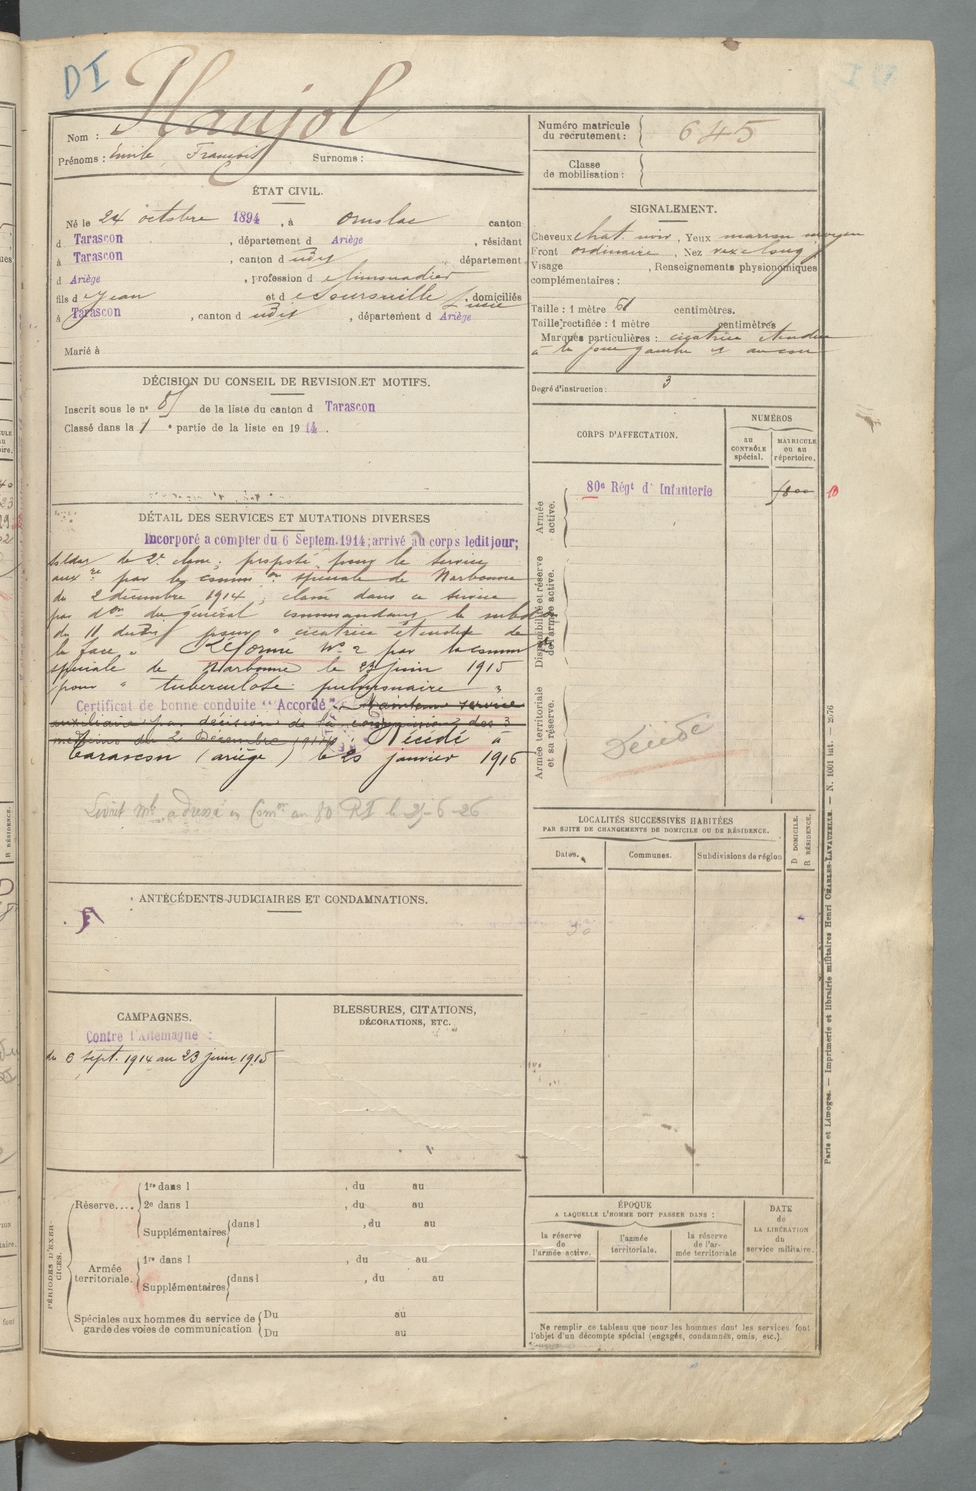 DI
Nom : Planjol
Prénoms : Emile François Surnoms :
Numéro matricule du recrutement : 645
Classe de mobilisation :
ÉTAT CIVIL.
Né le 24 octobre 1894, à Ornolac canton
d Tarascon, département d Ariège, résidant
à Tarascon, canton d udit département
d Ariège, profession d limonadier
fils d e Jean et d e domiciliés
à Tarascon, canton d udit, département d Ariège
Marié à
SIGNALEMENT.
Cheveux chat. noir, Yeux marron moyen
Front ordinaire, Nez
Visage , Renseignements physionomiques
complémentaires :
Taille : 1 mètre 61 centimètres.
Taille rectifiée : 1 mètre centimètres
Marques particulières : cicatrice étendue
à la joue gauche et au cou
Degré d'instruction : 3
DÉCISION DU CONSEIL DE REVISION ET MOTIFS.
Inscrit sous le n° de la liste du canton d Tarascon
Classé dans la 1e partie de la liste en 1914.
CORPS D'AFFECTATION.
NUMÉROS
AU CONTRÔLE spécial.
MATRICULE OU AU répertoire.
Armée active.
80e Régt d'Infanterie
Disponibilité et réserve de l'armée active.
Armée territoriale et sa réserve.
Décédé
DÉTAIL DES SERVICES ET MUTATIONS DIVERSES
Incorporé a compter du 6 Septem. 1914; arrivé au corps ledit jour;
soldat de 2e classe; proposé pour le service
auxre par la common spéciale de Narbonne
du 2 décembre 1914; classé dans ce service
par don du général commandant la subdon
du 11 dudit pour " cicatrice étendue de
la face " Réformé N° 2 par la comm
spéciale de Narbonne le 23 juin 1915
pour " tuberculose pulmonaire "
Certificat de bonne conduite "Accordé" Maintenu service
auxiliaire par décision de la commission des 3
médecins du 2 Décembre 1914. Décédé à
Tarascon (ariège) le 25 janvier 1916
Livret mle adressé au 80 RI le 25-6-26
LOCALITÉS SUCCESSIVES HABITÉES
PAR SUITE DE CHANGEMENTS DE DOMICILE OU DE RÉSIDENCE.
Dates. Communes. Subdivisions de région
D DOMICILE. R RÉSIDENCE.
ANTÉCÉDENTS JUDICIAIRES ET CONDAMNATIONS.
CAMPAGNES.
Contre l'Allemagne :
du 6 sept. 1914 au 23 juin 1915
BLESSURES, CITATIONS,
DÉCORATIONS, ETC.
PÉRIODES D'EXERCICES.
Réserve....
1re dans l , du au
2e dans l , du au
Supplémentaires dans l , du au
Armée territoriale.
1re dans l , du au
Supplémentaires dans l , du au
Spéciales aux hommes du service de garde des voies de communication
Du au
Du au
ÉPOQUE
A LAQUELLE L'HOMME DOIT PASSER DANS :
la réserve de l'armée active.
l'armée territoriale.
la réserve de l'armée territoriale
DATE de LA LIBÉRATION du service militaire.
Ne remplir ce tableau que pour les hommes dont les services font
l'objet d'un décompte spécial (engagés, condamnés, omis, etc.).
Paris et Limoges. — Imprimerie et librairie militaires Henri CHARLES-LAVAUZELLE. — N. 1001 int. — 2976